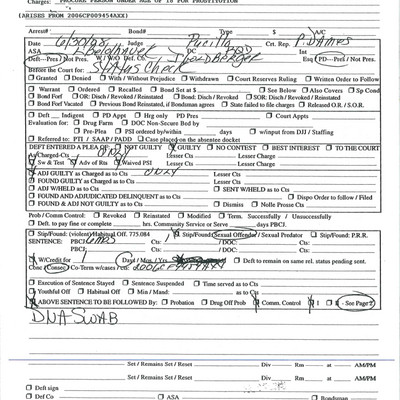 Charges: PROCURE PERSON UNDER AGE OF 18 FOR PROSTITUTION
(ARISES FROM 2006CF009454AXX)
Arrest# Bond# Type $ A/C
Date 6/30/08 Judge Pucillo Crt. Rep. P. James
ASA DC Int
Deft - Pres / Not Pres. W / W/O Def. Co J GOLDBERGER Esq PD - Pres / Not Pres.
Before the Court for: Status Check
Granted Denied With / Without Prejudice Withdrawn Court Reserves Ruling Written Order to Follow
Warrant Ordered Recalled Bond Set at $ See Below Also Covers Sp Cond
Bond Forf SOR: Disch / Revoked / Reinstated Bond: Disch / Revoked / Reinstated
Bond Forf Vacated Previous Bond Reinstated, if Bondsman agrees State failed to file charges Released O.R. / S.O.R.
Deft Indigent PD Appt Reg only PD Pres Court Appts
Evaluation for: Drug Farm DOC Non-Secure Bed by
Pre-Plea PSI ordered by/within days w/input from DJJ / Staffing
Referred to: PTI / SAAP / PADD Case placed on the absentee docket
DEFT ENTERED A PLEA OF: NOT GUILTY GUILTY NO CONTEST BEST INTEREST TO THE COURT
As Charged-Cts ONLY Lesser Cts Lesser Charge
Sw & Test Adv of Rts Waived PSI Lesser Cts Lesser Charge
ADJ GUILTY as Charged as to Cts ONLY Lesser Cts
FOUND GUILTY as Charged as to Cts Lesser Cts
ADJ W/HELD as to Cts Lesser Cts
FOUND AND ADJUDICATED DELINQUENT as to Cts Dispo Order to follow / Filed
FOUND & ADJ NOT GUILTY as to Cts Dismiss Nolle Prosse Cts
Prob / Comm Control: Revoked Reinstated Modified Term. Successfully / Unsuccessfully
Deft. to pay fine or complete hrs. Community Service or Serve days PBCJ.
Stip/Found: (violent) Habitual Off. 775.084 Stip/Found: Sexual Offender / Sexual Predator Stip/Found: P.R.R.
SENTENCE: PBCJ 6 mos Cts / DOC: Cts
PBCJ Cts / DOC: Cts
W/Credit for 1 Days / Mos. / Yrs Deft to remain on same rel. status pending sent.
Conc / Consec / Co-Term w/cases / cts 2006CF9454AXX
Execution of Sentence Stayed Sentence Suspended Time served as to Cts
Youthful Off Habitual Off / Min / Mand: as to Cts
ABOVE SENTENCE TO BE FOLLOWED BY: Probation Drug Off Prob Comm. Control I II - See Page 2
DNA SWAB
Set / Remains Set / Reset Div Rm at AM/PM
Set / Remains Set / Reset Div Rm at AM/PM
Set / Remains Set / Reset Div Rm at AM/PM
Deft sign
Def Co ASA Bondsman